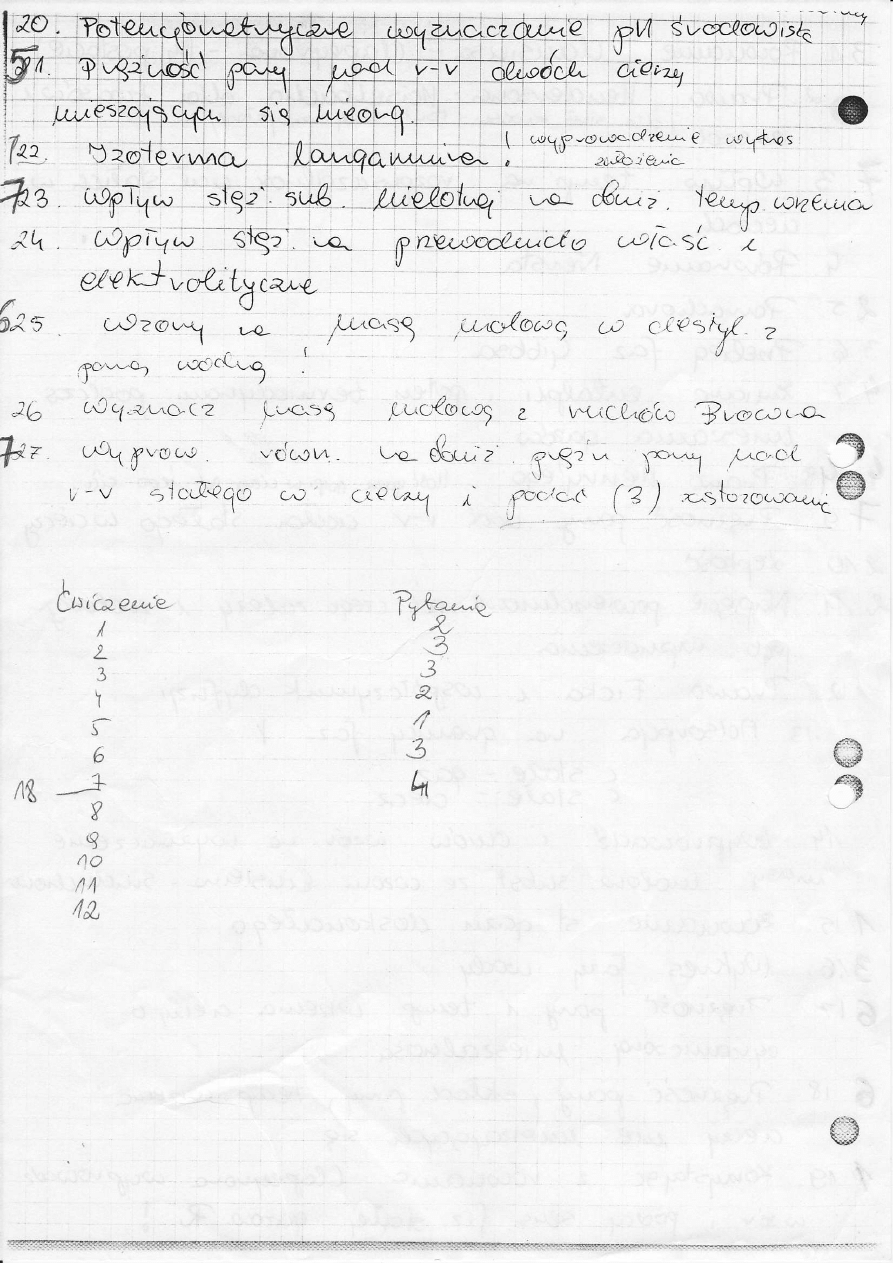 20. Potencjometryczne wyznaczanie pH środowiska
5 21. Prężność pary nad r-r dwóch cieczy
mieszających się nieogr.
1 22. Izoterma Langmuira! wyprowadzenie wykres
założenia
7 23. Wpływ stęż. sub. nielotnej na obniż. temp. wrzenia
24. Wpływ stęż na przewodnictwo właść i
elektrolityczne
6 25. wzory na masę molową w destyl. z
parą wodną!
26 wyznacz masę molową z ruchów Browna
7 27. wyprow. równ. na obniż prężn pary nad
r-r stałego w cieczy i podać (3) zastosowanie
Ćwiczenie Pytanie
1 2
2 3
3 3
4 2
5 1
6 3
18 7 4
8
9
10
11
12